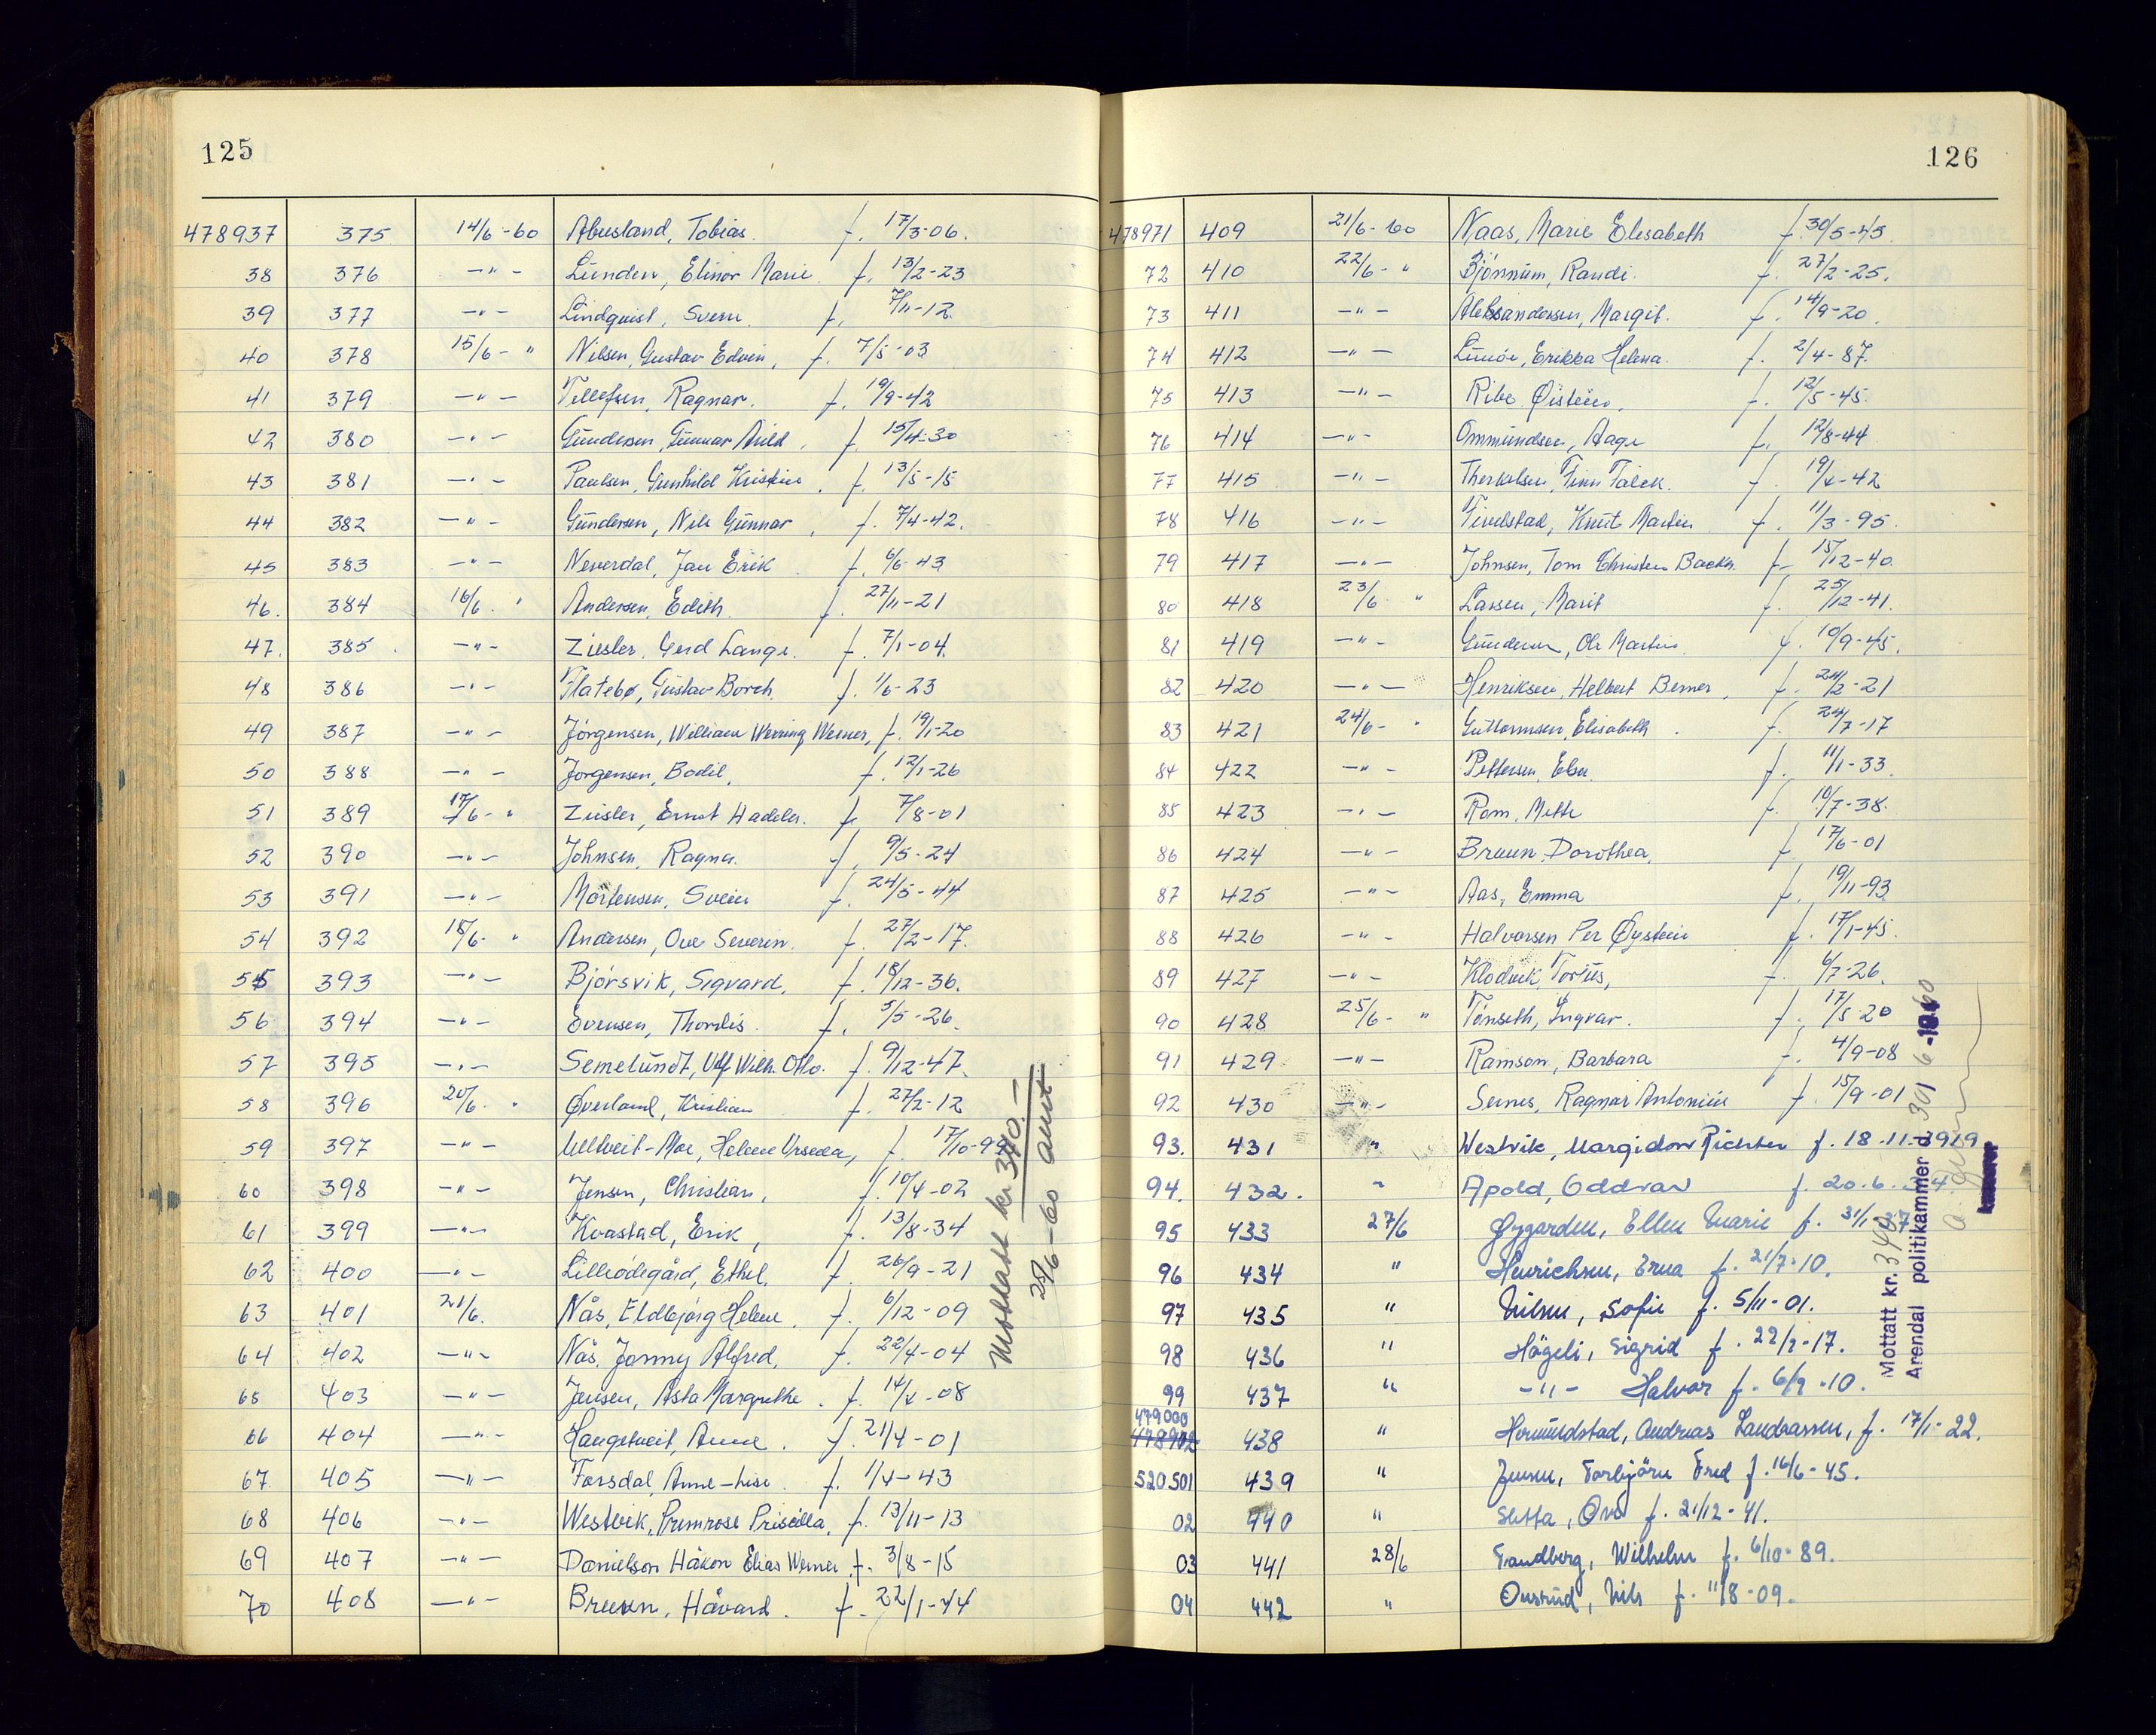 125
478937 375 14/6-60 Abusland, Tobias. f. 17/3-06.
38 376 —"— Lunden, Elinor Marie. f. 13/2-23
39 377 —"— Lindquist, Svern. f. 7/11-12.
40 378 15/6-" Nilsen, Gustav Edvin, f. 7/5-03
41 379 —"— Tellefsen, Ragnar. f. 19/9-42
42 380 —"— Gundersen, Gunnar Arild, f. 15/4-30
43 381 —"— Paulsen, Gunhild Kristine, f. 13/5-15
44 382 —"— Gundersen, Nils Gunnar, f. 7/4-42.
45 383 —"— Neverdal, Jan Erik f. 6/6-43
46. 384 16/6. " Andersen, Edith. f. 27/11-21
47. 385. —"— Ziesler, Gerd Lange. f. 7/1-04.
48 386 —"— Flatebø, Gustav Borch. f. 1/6-23
49 387 —"— Jörgensen, William Werring Werner, f. 19/1-20
50 388 —"— Jörgensen, Bodil, f. 12/1-26
51 389 17/6-" Ziesler, Ernst Hadeler. f. 7/8-01
52 390 —"— Johnsen, Ragna. f. 9/5-24
53 391 —"— Mortensen, Svein f. 24/5-44
54 392 18/6-" Andersen, Ove Severin. f. 27/2-17.
55 393 —"— Bjørsvik, Sigvard, f. 18/12-36.
56 394 —"— Evensen, Thordis. f. 5/5-26.
57 395 —"— Semelundt, Ulf Wilh. Otto. f. 9/12-47.
58 396 20/6. " Øverland, Kristian f. 27/2-12
59 397 —"— Ullveit-Moe, Helene Ursula, f. 17/10-99
60 398 —"— Jensen, Christian, f. 10/4-02
61 399 —"— Kvastad, Erik, f. 13/8-34
62 400 —"— Lillerødegård, Ethel, f. 26/9-21
63 401 21/6. Nås, Eldbjørg Helene. f. 6/12-09
64 402 —"— Nås, Jonny Alfred, f. 22/4-04
65 403 —"— Jensen, Asta Margrethe. f. 14/4-08
66 404 —"— Haugetveit, Anne. f. 21/4-01
67. 405 —"— Forsdal, Anne-Lise. f. 1/4-43
68 406 —"— Westvik, Primrose Priscilla, f. 13/11-13
69 407 —"— Danielson Håkon Elias Werner f. 3/8-15
70 408 —"— Bruun, Håvard. f. 22/1-44
Mottatt kr 340.—
25/6-60
126
478971 409 21/6-60 Naas, Marie Elisabeth f. 30/5-45.
72 410 22/6-" Bjönnum, Randi. f. 27/2-25.
73 411 —"— Aleksandersen, Margit. f. 14/9-20.
74 412 —"— Erikka Helena. f. 2/4-87.
75 413 —"— Ribe Øistein. f. 12/5-45.
76 414 —"— Ommundsen, Aage f. 12/8-44
77 415 —"— Therkelsen, Finn Falck. f. 19/4-42
78 416 —"— Tivelstad, Knut Martin f. 11/3-95.
79 417 —"— Johnsen, Tom Christen Backer. f. 15/12-40.
80 418 23/6 " Larsen, Marit f. 25/12-41.
81 419 —"— Gundersen, Ole Martin. f. 10/9-45.
82 420 —"— Henriksen, Helbert Berner, f. 24/2-21
83 421 24/6-" Guttormsen, Elisabeth. f. 24/7-17
84 422 —"— Pettersen, Elsa. f. 11/1-33.
85 423 —"— Rom, Mette f. 10/7-38.
86 424 —"— Bruun, Dorothea, f. 17/6-01
87 425 —"— Aas, Emma f. 19/11-93.
88 426 —"— Halvorsen Per Øystein f. 17/1-45.
89 427 —"— Klodvik, Torüs, f. 6/7-26.
90 428 25/6-" Tönseth, Ingvar. f. 17/5-20
91 429 —"— Ramson, Barbara f. 4/9-08
92 430 —"— Sernes, Ragnar Antonius f. 15/9-01
93. 431 " Westvik, Margidon Richter f. 18-11-1919
94. 432. " Apold, Oddvar f. 20.6.
95 433 27/6 Øygarden, Ellen Marie f. 31/1
96 434 " Henrichsen, Erna f. 21/7-10.
97 435 " Nilsen, Sofie f. 5/11-01.
98 436 " Högeli, Sigrid f. 22/2-17.
99 437 " —"— Halvor f. 6/9-10.
479000
438 " Hermundstad, Andreas Landrassen, f. 17/1-22.
520.501 439 " Jensen, Torbjörn Fred f. 16/6-45.
02 440 " Sletta, Ove f. 21/12-41.
03 441 28/6 Sandberg, Wilhelm f. 6/10-89.
04 442 " Onsrud, Nils f. 11/8-09.
Mottatt kr. 340
Arendal politikammer d. 30/ 6-1960